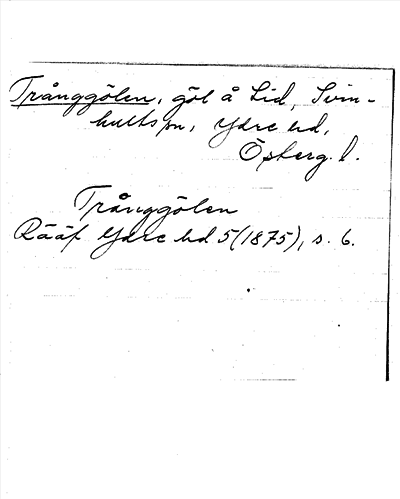 Trånggölen, göl å Lid, Svin-
hults sn, Ydre hd,
Östergl.
Trånggölen
Rääf Ydre hd 5 (1875), s. 6.